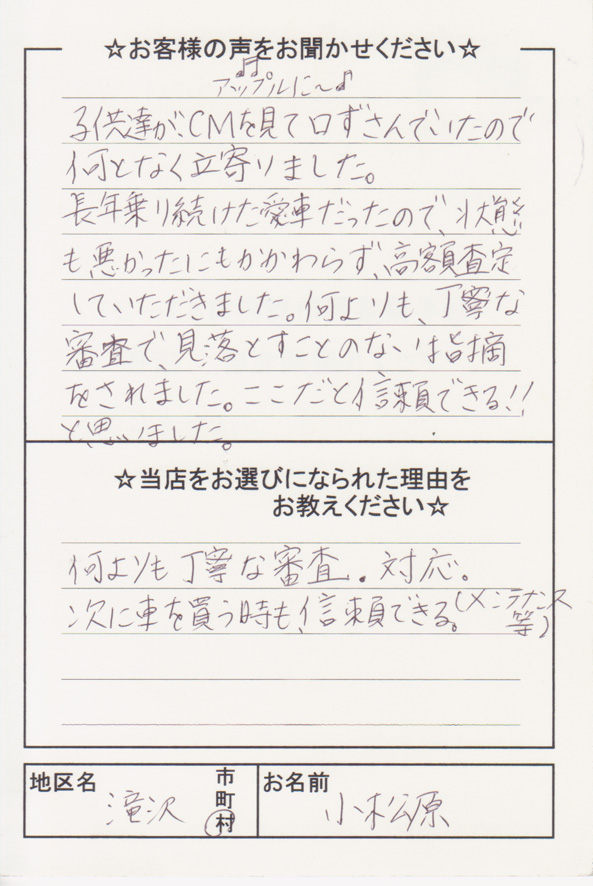 ☆お客様の声をお聞かせください☆
アップルに〜♪
子供達が、CMを見て口ずさんでいたので
何となく立寄りました。
長年乗り続けた愛車だったので、状態
も悪かったにもかかわらず、高額査定
していただきました。何よりも、丁寧な
審査で、見落とすことのない指摘
をされました。ここだと信頼できる!!
と思いました。
☆当店をお選びになられた理由を
お教えください☆
何よりも丁寧な審査・対応。
次に車を買う時も、信頼できる。(メンテナンス
等)
地区名 滝沢 市
町
村
お名前 小松原